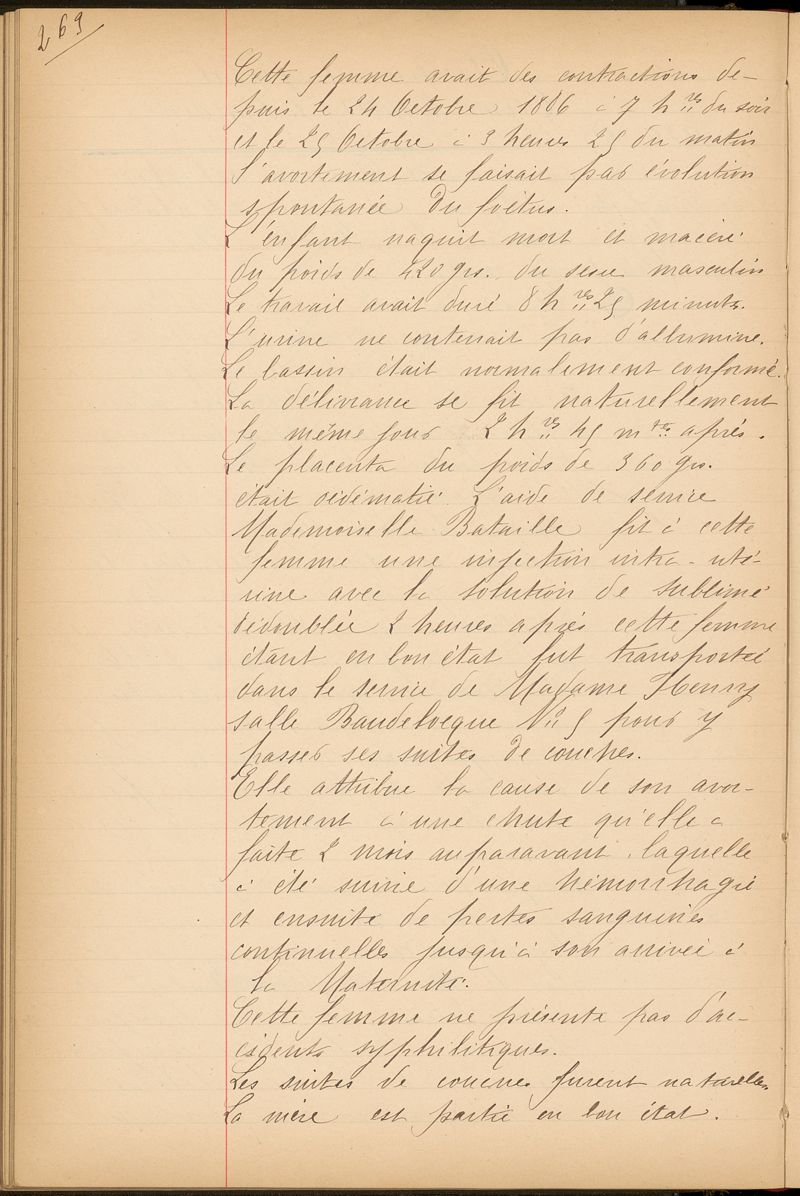 269
Cette femme avait des contractions de-
puis le 24 Octobre 1886 à 7 h res du soir
et le 25 Octobre à 3 heures 25 du matin
l'avortement se faisait par évolution
spontanée du foetus.
L'enfant naquit mort et macéré
du poids de 420 grs. du sexe masculin
Le travail avait duré 8 h res 25 minutes.
L'urine ne contenait pas d'albumine.
Le bassin était normalement conformé.
La délivrance se fit naturellement
le même jour 2 h res 45 m tes après.
Le placenta du poids de 360 grs.
était oedématié. L'aide de service
Mademoiselle Bataille fit à cette
femme une injection intra-uté-
rine avec la solution de sublimé
dédoublée 2 heures après cette femme
étant en bon état fut transportée
dans le service de Madame Henry
salle Baudelocque No 5 pour y
passer ses suites de couches.
Elle attribue la cause de son avor-
tement à une chute qu'elle a
faite 2 mois auparavant, laquelle
à été suivie d'une hémorrhagie
et ensuite de pertes sanguines
continuelles jusqu'à son arrivée à
la Maternité.
Cette femme ne présente pas d'ac-
cidents syphilitiques.
Les suites de couches furent naturelles
La mère est partie en bon état.